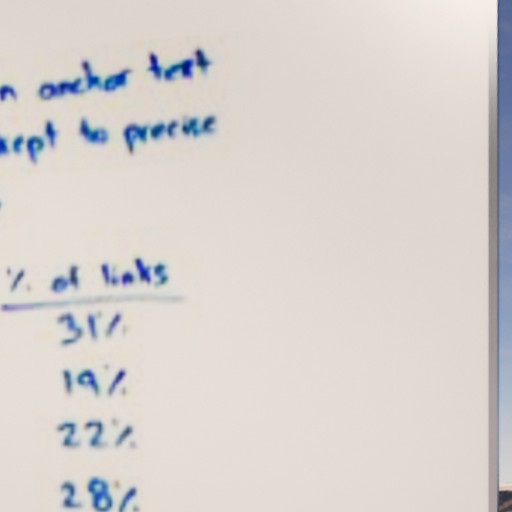 n anchor text
kept to precise
% of links
31%
19%
22%
28%